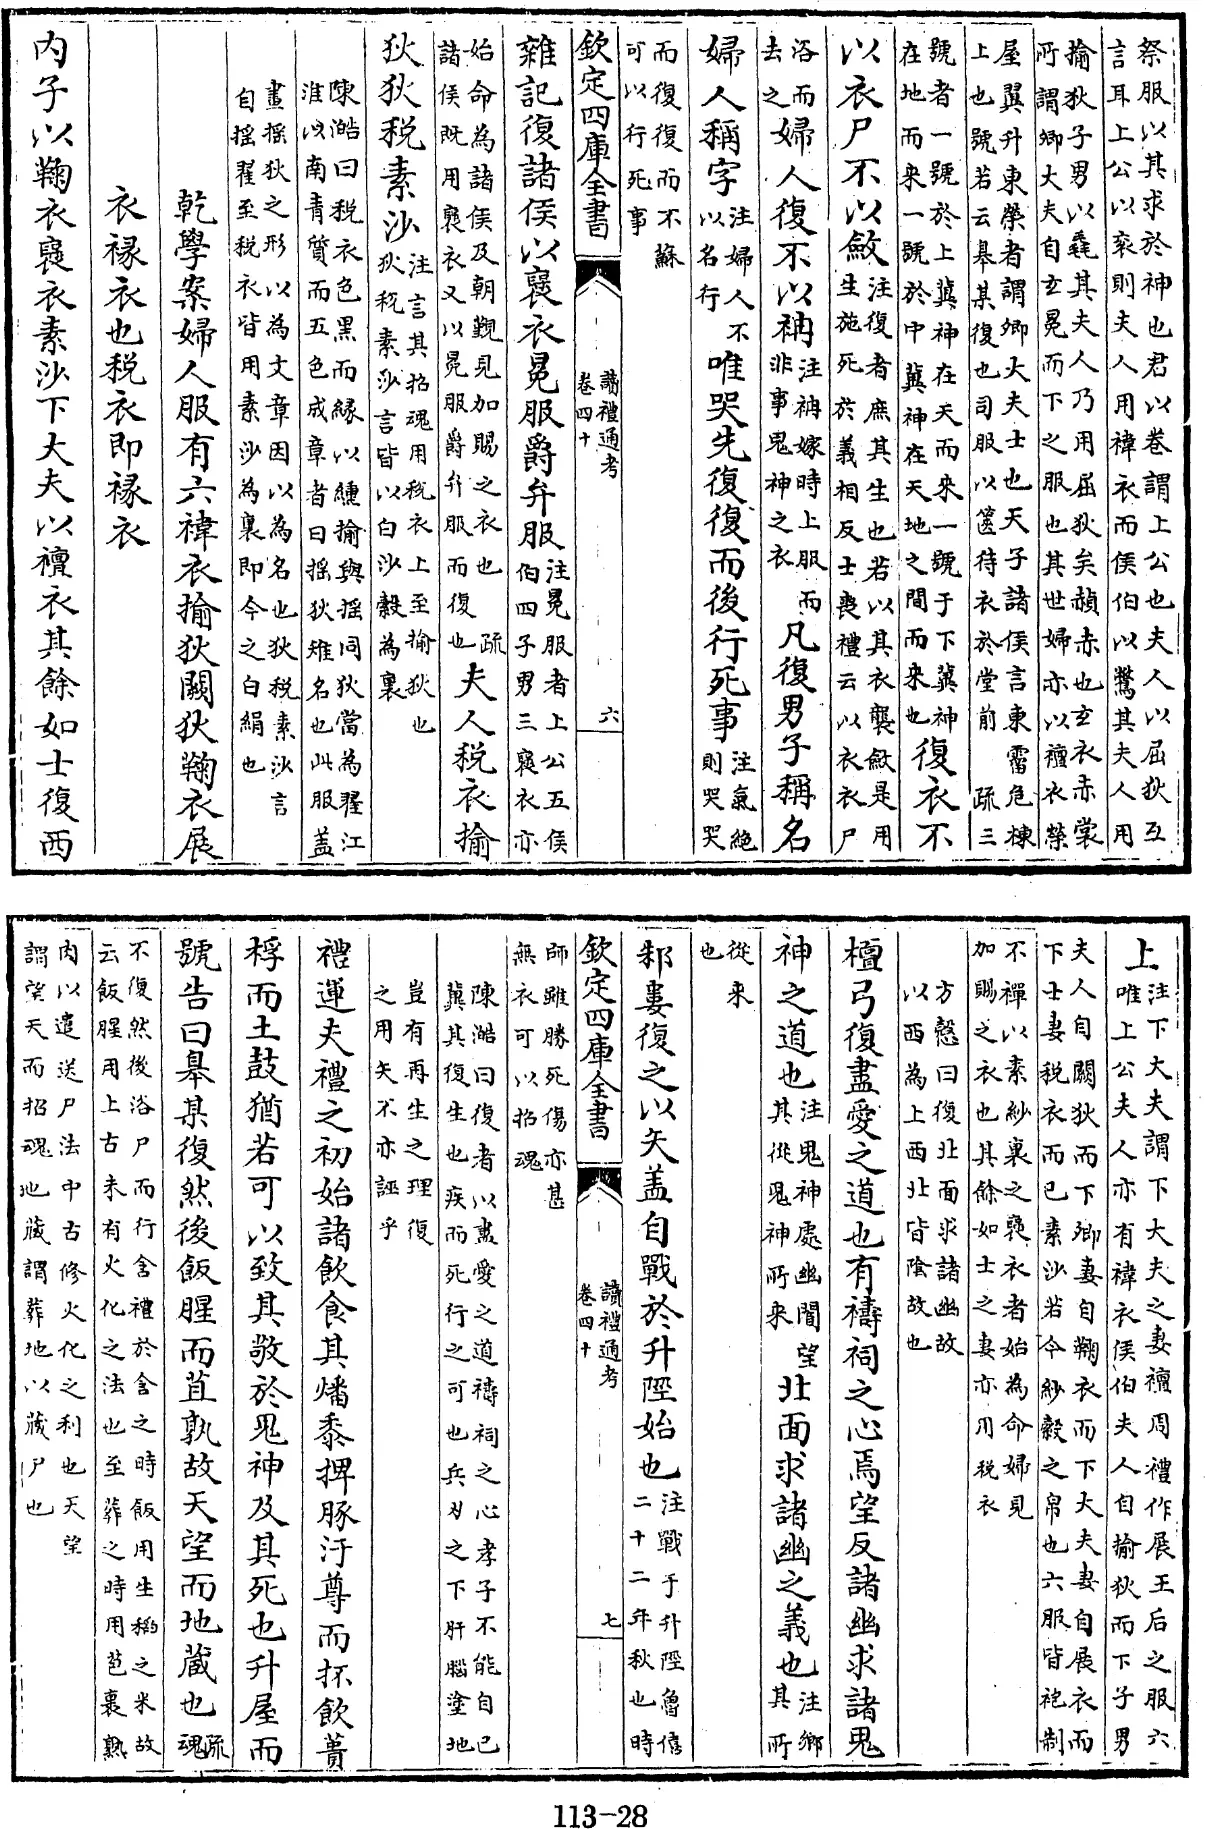 祭服以其求於神也君以卷謂上公也夫人以屈狄互
言耳上公以衮則夫人用褘衣而侯伯以鷩其夫人用
揄狄子男以毳其夫人乃用屈狄矣赬赤也玄衣赤裳
所謂卿大夫自玄冕而下之服也其世婦亦以襢衣榮
屋翼升東榮者謂卿大夫士也天子諸侯言東霤危棟
上也號若云臯某復也司服以篋待衣於堂前 疏三
號者一號於上冀神在天而來一號于下冀神
在地而來一號於中冀神在天地之間而來也復衣不
以衣尸不以斂注復者庶其生也若以其衣襲斂是用生施死於義相反士喪禮云以衣衣尸
浴而去之婦人復不以袡注袡嫁時上服而非事鬼神之衣凡復男子稱名
婦人稱字注婦人不以名行唯哭先復復而後行死事注氣絶則哭哭
而復復而不蘇可以行死事
欽定四庫全書 讀禮通考 卷四十 六
雜記復諸侯以褒衣冕服爵弁服注冕服者上公五侯伯四子男三褒衣亦
始命為諸侯及朝覲見加賜之衣也 疏諸侯既用褒衣又以冕服爵弁服而復也夫人税衣揄
狄狄税素沙注言其招魂用税衣上至揄狄也狄税素沙言皆以白沙縠為裏
陳澔曰税衣色黑而縁以纁揄與摇同狄當為翟江
淮以南青質而五色成章者曰摇狄雉名也此服盖
畫摇狄之形以為文章因以為名也狄税素沙言
自摇翟至税衣皆用素沙為裏即今之白絹也
乾學案婦人服有六褘衣揄狄闕狄鞠衣展
衣褖衣也税衣即褖衣
内子以鞠衣褒衣素沙下大夫以襢衣其餘如士復西
上注下大夫謂下大夫之妻襢周禮作展王后之服六唯上公夫人亦有褘衣侯伯夫人自揄狄而下子男
夫人自闕狄而下卿妻自鞠衣而下大夫妻自展衣而
下士妻税衣而已素沙若今紗縠之帛也六服皆袍制
不襌以素紗裏之褒衣者始為命婦見
加賜之衣也其餘如士之妻亦用税衣
方慤曰復北面求諸幽故
以西為上西北皆陰故也
檀弓復盡愛之道也有禱祠之心焉望反諸幽求諸鬼
神之道也注鬼神處幽闇望其從鬼神所來北面求諸幽之義也注鄉其所
從來也
邾婁復之以矢盖自戰於升陘始也注戰于升陘魯僖二十二年秋也時
師雖勝死傷亦甚無衣可以招魂
欽定四庫全書 讀禮通考 卷四十 七
陳澔曰復者以盡愛之道禱祠之心孝子不能自已
冀其復生也疾而死行之可也兵刃之下肝腦塗地
豈有再生之理復
之用矢不亦誣乎
禮運夫禮之初始諸飲食其燔黍捭豚汙尊而抔飲蕢
桴而土鼓猶若可以致其敬於鬼神及其死也升屋而
號告曰臯某復然後飯腥而苴孰故天望而地藏也疏魂
不復然後浴尸而行含禮於含之時飯用生稻之米故
云飯腥用上古未有火化之法也至葬之時用苞裹熟
肉以遣送尸法中古修火化之利也天望
謂望天而招魂地藏謂葬地以藏尸也
113-28